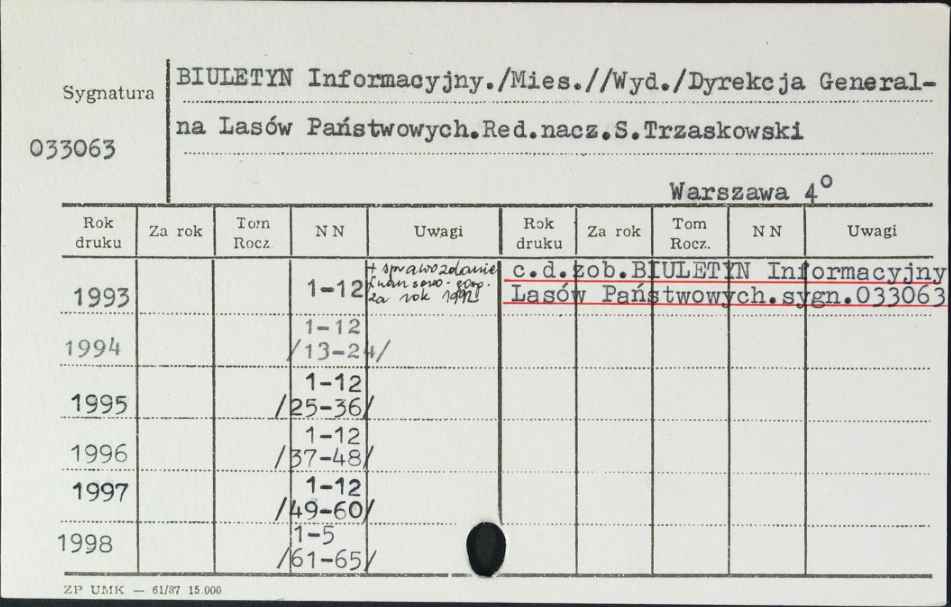 BIULETYN Informacyjny./Mies.//Wyd./Dyrekcja General-
Sygnatura
na Lasów Państwowych.Red.nacz.S.Trzaskowski
033063
Warszawa 4°
Rok druku Za rok Tom Rocz. NN Uwagi Rok druku Za rok Tom Rocz. NN Uwagi
1993 1-12 + sprawozdanie finansowo-gosp. za rok 1992
c.d.zob.BIULETYN Informacyjny
Lasów Państwowych.sygn.033063
1994 1-12
/13-24/
1995 1-12
/25-36/
1996 1-12
/37-48/
1997 1-12
/49-60/
1998 1-5
/61-65/
ZP UMK — 61/87 15.000